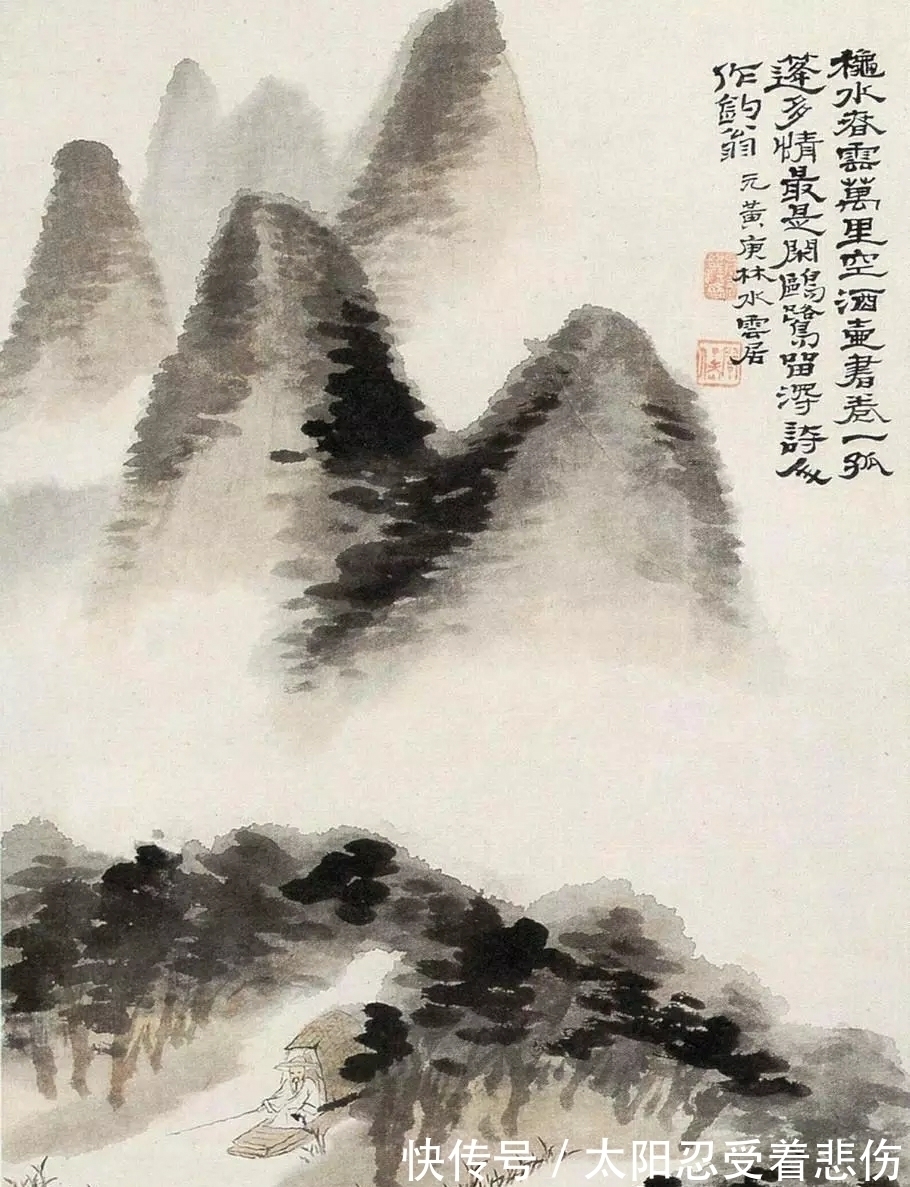 穐水春雲萬里空酒壺書卷一孤
蓬多情最是閑鷗鷺留淂詩人
作釣翁 元黃庚林水雲居
快传号 / 太阳忍受着悲伤